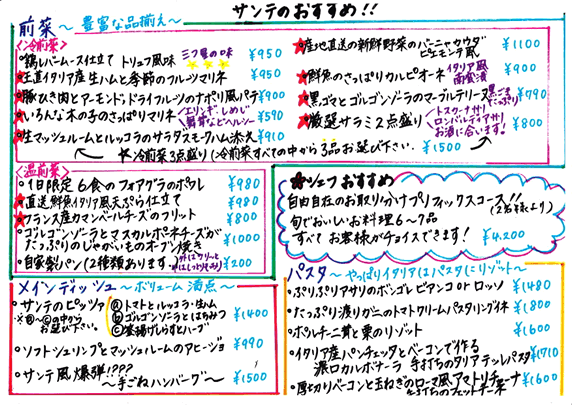 サンテのおすすめ!!
前菜 〜豊富な品揃え〜
<冷前菜>
・鶏レバームース仕立て トリュフ風味 三ツ星の味 ¥950
★直イタリア産生ハムと季節のフルーツマリネ ¥950
★豚ひき肉とアーモンド、ドライフルーツのナポリ風パテ ¥900
・いろんな木の子のさっぱりマリネ エリンギ・しめじ ¥590
★生マッシュルームとルッコラのサラダスモークハム添え ¥910
★産地直送の新鮮野菜のバーニャカウダ ピエモンテ風 ¥1100
★鮮魚のさっぱりカルピオーネ イタリア風南蛮漬 ¥900
★黒ゴマとゴルゴンゾーラのマーグルテリーヌ 黒ごまたっぷり ¥790
★厳選サラミ2点盛り トスカーナサラミ ロンバルディアサラミ お酒に合います! ¥800
★冷前菜3点盛り(冷前菜すべての中から3品お選び下さい。) ¥1500
<温前菜>
・1日限定6食のフォアグラのポワレ ¥980
★直送鮮魚イタリア風天ぷら仕立て ¥980
★フランス産カマンベールチーズのフリット ¥800
・ゴルゴンゾーラとマスカルポーネチーズが
たっぷりのじゃがいものオーブン焼き ¥1000
・自家製パン(2種類あります) 外はカリッと 中はしっとりもちり ¥200
★シェフおすすめ
自由自在のお取り分けプリフィックスコース!!
(2名様より)
旬でおいしいお料理6〜7品
すべてお客様がチョイスできます! ¥4,200
メインディッシュ 〜ボリューム満点〜
・サンテのピッツァ ⓐトマトとルッコラ・生ハム
※ⓐ〜ⓒの中から ⓑゴルゴンゾーラとはちみつ ¥1400
お選び下さい。 ⓒ釜揚げしらすとハーブ
・ソフトシュリンプとマッシュルームのアヒージョ ¥990
・サンテ風爆弾!???
〜手ごねハンバーグ〜 ¥1500
パスタ 〜やっぱりイタリアはパスタにリゾット〜
・ぷりぷりアサリのボンゴレ ビアンコ or ロッソ ¥1480
・たっぷり渡りガニのトマトクリームパスタリングイネ ¥1800
・ポルチーニ茸と栗のリゾット ¥1600
・イタリア産パンチェッタとベーコンで作る
濃口カルボナーラ 手打ちのタリアテッレパスタ ¥1710
・厚切りベーコンと玉ねぎのローマ風アマトリチャーナ
手打ちのフェットチーネ ¥1600